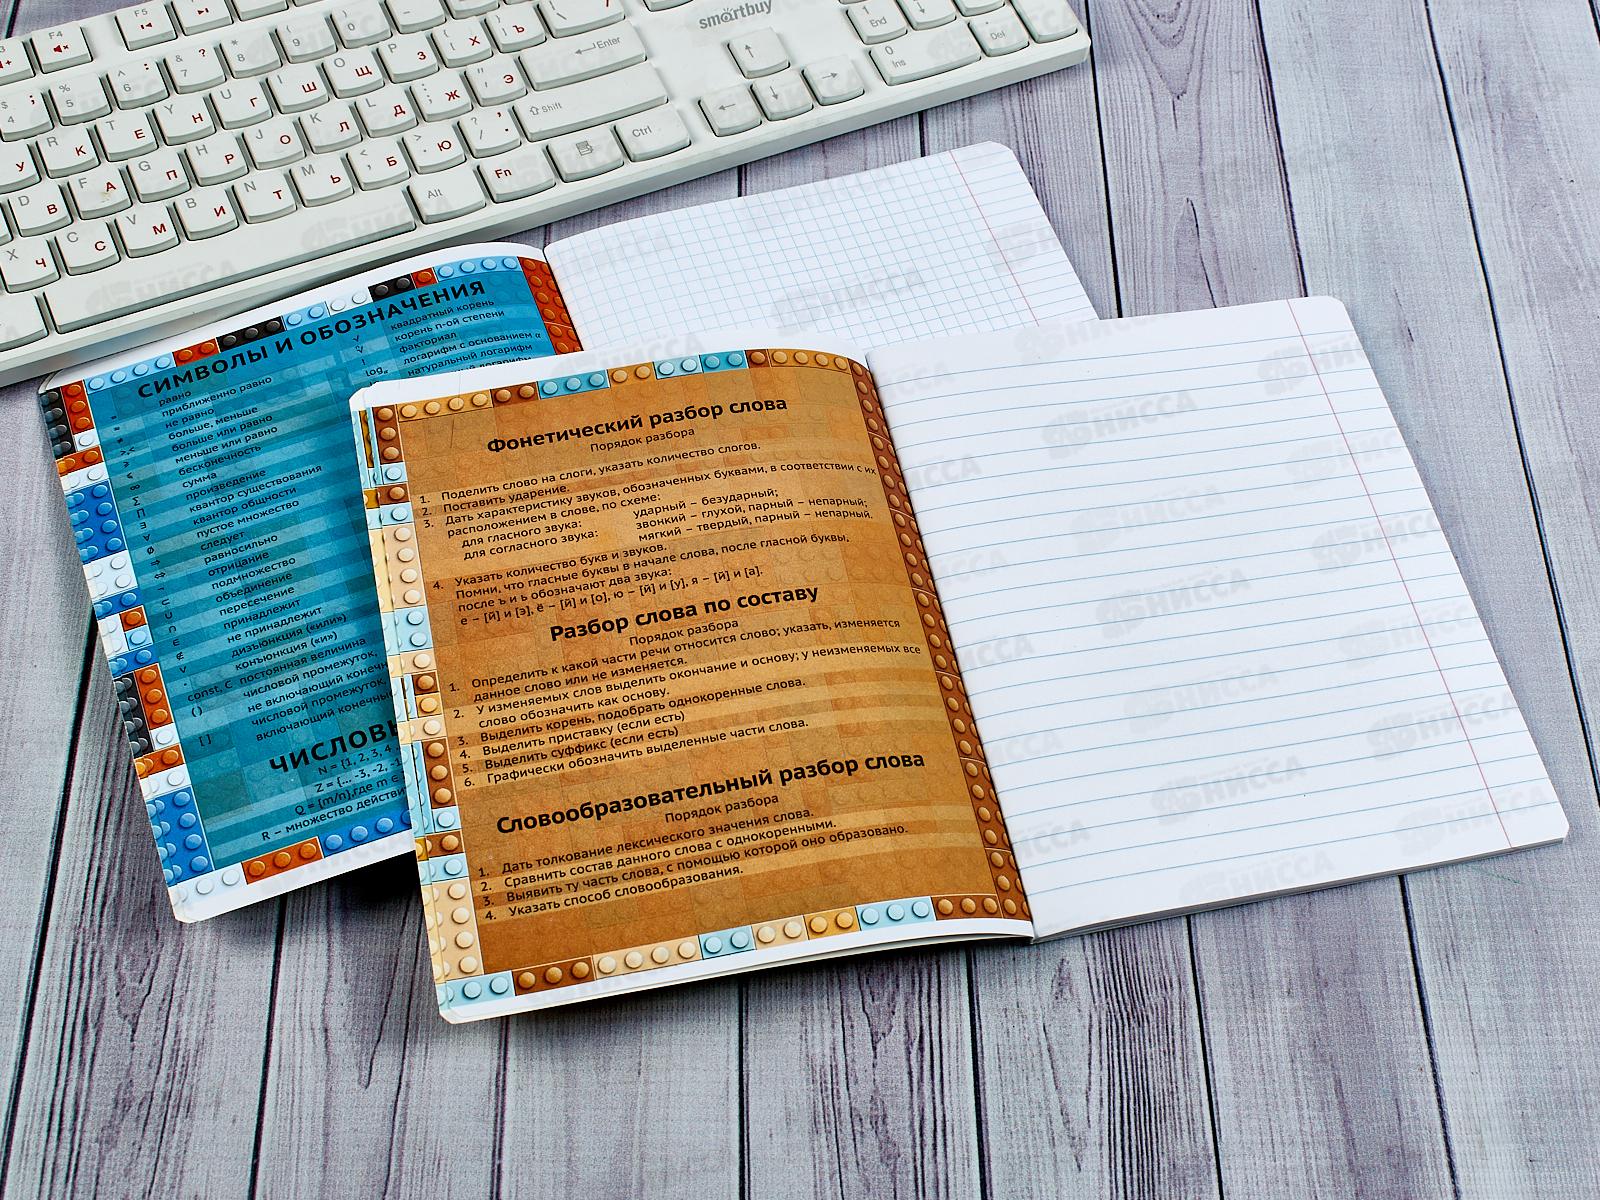 smartbuy
F5
F4
End
Del
Ins
Enter
Shift
Ctrl
Alt
Fn
СИМВОЛЫ И ОБОЗНАЧЕНИЯ
равно
приближенно равно
не равно
больше, меньше
больше или равно
меньше или равно
бесконечность
сумма
произведение
квантор существования
квантор общности
пустое множество
следует
равносильно
отрицание
подмножество
объединение
пересечение
принадлежит
не принадлежит
дизъюнкция («или»)
конъюнкция («и»)
const, C постоянная величина
( ) числовой промежуток,
не включающий конечн
[ ] числовой промежуток,
включающий конечны
квадратный корень
корень n-ой степени
! факториал
logₐ логарифм с основанием α
натуральный логарифм
ЧИСЛОВЫ
N = {1, 2, 3, 4
Z = {... -3, -2, -1
Q = {m/n},где m ∈
R – множество действи
Фонетический разбор слова
Порядок разбора
1. Поделить слово на слоги, указать количество слогов.
2. Поставить ударение.
3. Дать характеристику звуков, обозначенных буквами, в соответствии с их
расположением в слове, по схеме:
для гласного звука: ударный – безударный;
для согласного звука: звонкий – глухой, парный – непарный;
мягкий – твердый, парный – непарный.
4. Указать количество букв и звуков.
Помни, что гласные буквы в начале слова, после гласной буквы,
после ъ и ь обозначают два звука:
е – [й] и [э], ё – [й] и [о], ю – [й] и [у], я – [й] и [а].
Разбор слова по составу
Порядок разбора
1. Определить к какой части речи относится слово; указать, изменяется
данное слово или не изменяется.
2. У изменяемых слов выделить окончание и основу; у неизменяемых все
слово обозначить как основу.
3. Выделить корень, подобрать однокоренные слова.
4. Выделить приставку (если есть)
5. Выделить суффикс (если есть)
6. Графически обозначить выделенные части слова.
Словообразовательный разбор слова
Порядок разбора
1. Дать толкование лексического значения слова.
2. Сравнить состав данного слова с однокоренными.
3. Выявить ту часть слова, с помощью которой оно образовано.
4. Указать способ словообразования.
НИССА